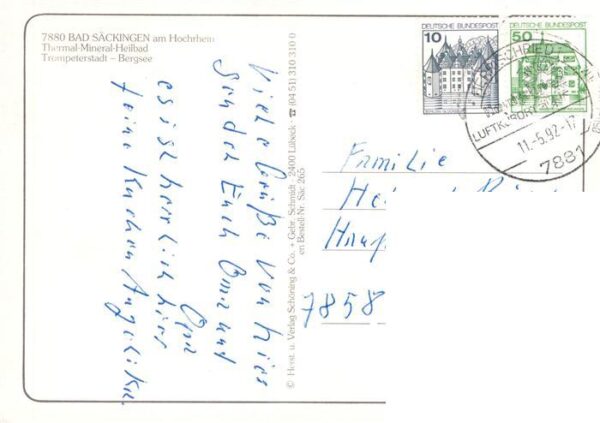 7880 BAD SÄCKINGEN am Hochrhein
Thermal-Mineral-Heilbad
Trompeterstadt – Bergsee
Viele Grüße von hier
senden Euch Oma und
Opa
es ist herrlich hier
keine Kuchen Angelika.
© Horst u. Verlag Schöning & Co. + Gebr. Schmidt · 2400 Lübeck ☎ (04 51) 310 310 0
en Bestell-Nr. Säc 265
10 DEUTSCHE BUNDESPOST
50 DEUTSCHE BUNDESPOST
HERRISCHRIED
LUFTKURORT
11.-5.92.-17
7881
Familie
7858